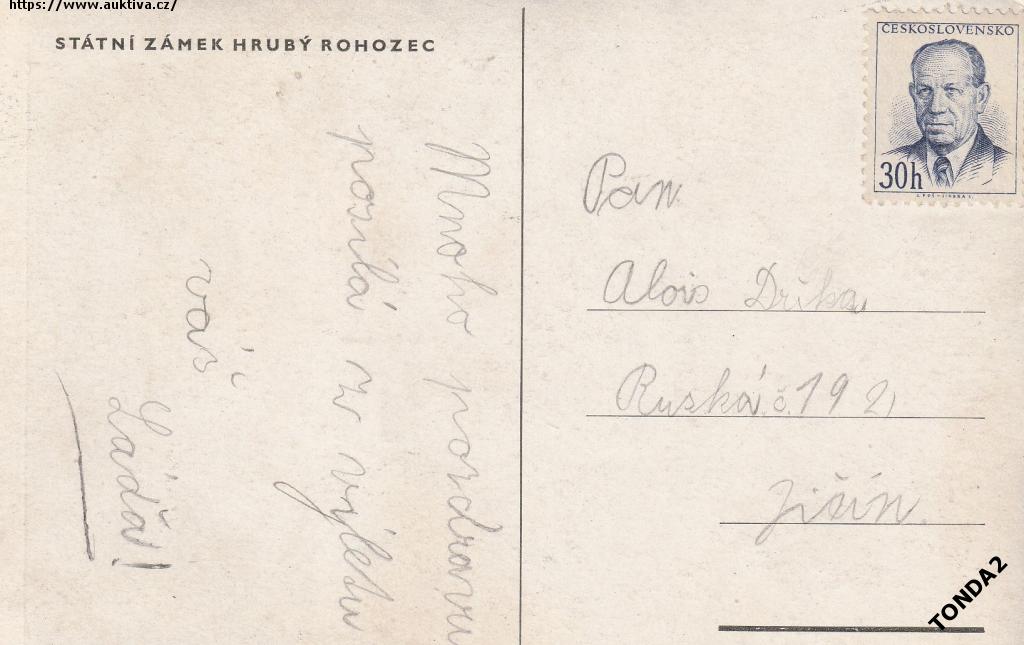 https://www.auktiva.cz/
STÁTNÍ ZÁMEK HRUBÝ ROHOZEC
Mnoho pozdravu
posílá ze výletu
váš
Láďa!
ČESKOSLOVENSKO
30h
Pan
Alois Drška
Ruská č. 192
Jičín.
TONDA2